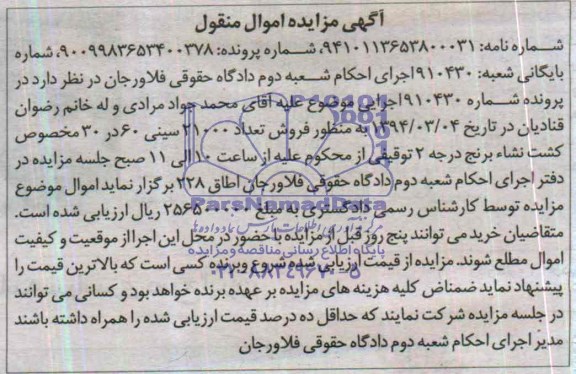 آگهی مزایده اموال منقول
شماره نامه: ۹۴۱۰۱۱۳۶۵۳۸۰۰۰۳۱، شماره پرونده: ۹۰۰۹۹۸۳۶۵۳۴۰۰۳۷۸، شماره
بایگانی شعبه: ۹۱۰۴۳۰ اجرای احکام شعبه دوم دادگاه حقوقی فلاورجان در نظر دارد در
پرونده شماره ۹۱۰۴۳۰ اجرایی موضوع علیه آقای محمد جواد مرادی و له خانم رضوان
قنادیان در تاریخ ۱۳۹۴/۰۳/۰۴ به منظور فروش تعداد ۲۱۰۰۰ سینی ۶۰ در ۳۰ مخصوص
کشت نشاء برنج درجه ۲ توقیفی از محکوم علیه از ساعت ۱۰ الی ۱۱ صبح جلسه مزایده در
دفتر اجرای احکام شعبه دوم دادگاه حقوقی فلاورجان اطاق ۲۲۸ برگزار نماید اموال موضوع
مزایده توسط کارشناس رسمی دادگستری به مبلغ ریال ارزیابی شده است.
متقاضیان خرید می توانند پنج روز قبل از مزایده با حضور در محل این اجرا از موقعیت و کیفیت
اموال مطلع شوند. مزایده از قیمت ارزیابی شده شروع و برنده کسی است که بالاترین قیمت را
پیشنهاد نماید ضمناض کلیه هزینه های مزایده بر عهده برنده خواهد بود و کسانی می توانند
در جلسه مزایده شرکت نمایند که حداقل ده درصد قیمت ارزیابی شده را همراه داشته باشند
مدیر اجرای احکام شعبه دوم دادگاه حقوقی فلاورجان
ParsNamadData
پایگاه اطلاع رسانی مناقصه و مزایده